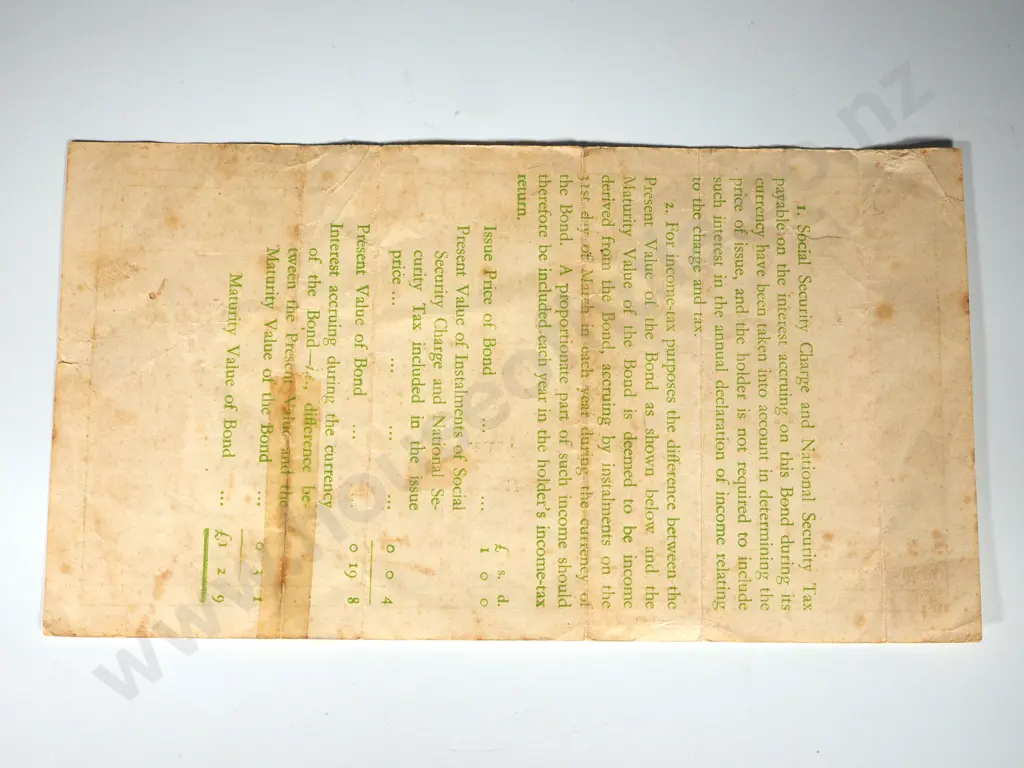 1. Social Security Charge and National Security Tax
payable on the interest accruing on this Bond during its
currency have been taken into account in determining the
price of issue, and the holder is not required to include
such interest in the annual declaration of income relating
to the charge and tax.
2. For income-tax purposes the difference between the
Present Value of the Bond as shown below and the
Maturity Value of the Bond is deemed to be income
derived from the Bond, accruing by instalments on the
31st day of March in each year during the currency of
the Bond. A proportionate part of such income should
therefore be included each year in the holder's income-tax
return.
£ s. d.
Issue Price of Bond ... ... 1 0 0
Present Value of Instalments of Social
Security Charge and National Se-
curity Tax included in the issue
price ... ... ... ... 0 0 4
Present Value of Bond ... ... 0 19 8
Interest accruing during the currency
of the Bond—i.e., difference be-
tween the Present Value and the
Maturity Value of the Bond ... 0 3 1
Maturity Value of Bond ... £1 2 9